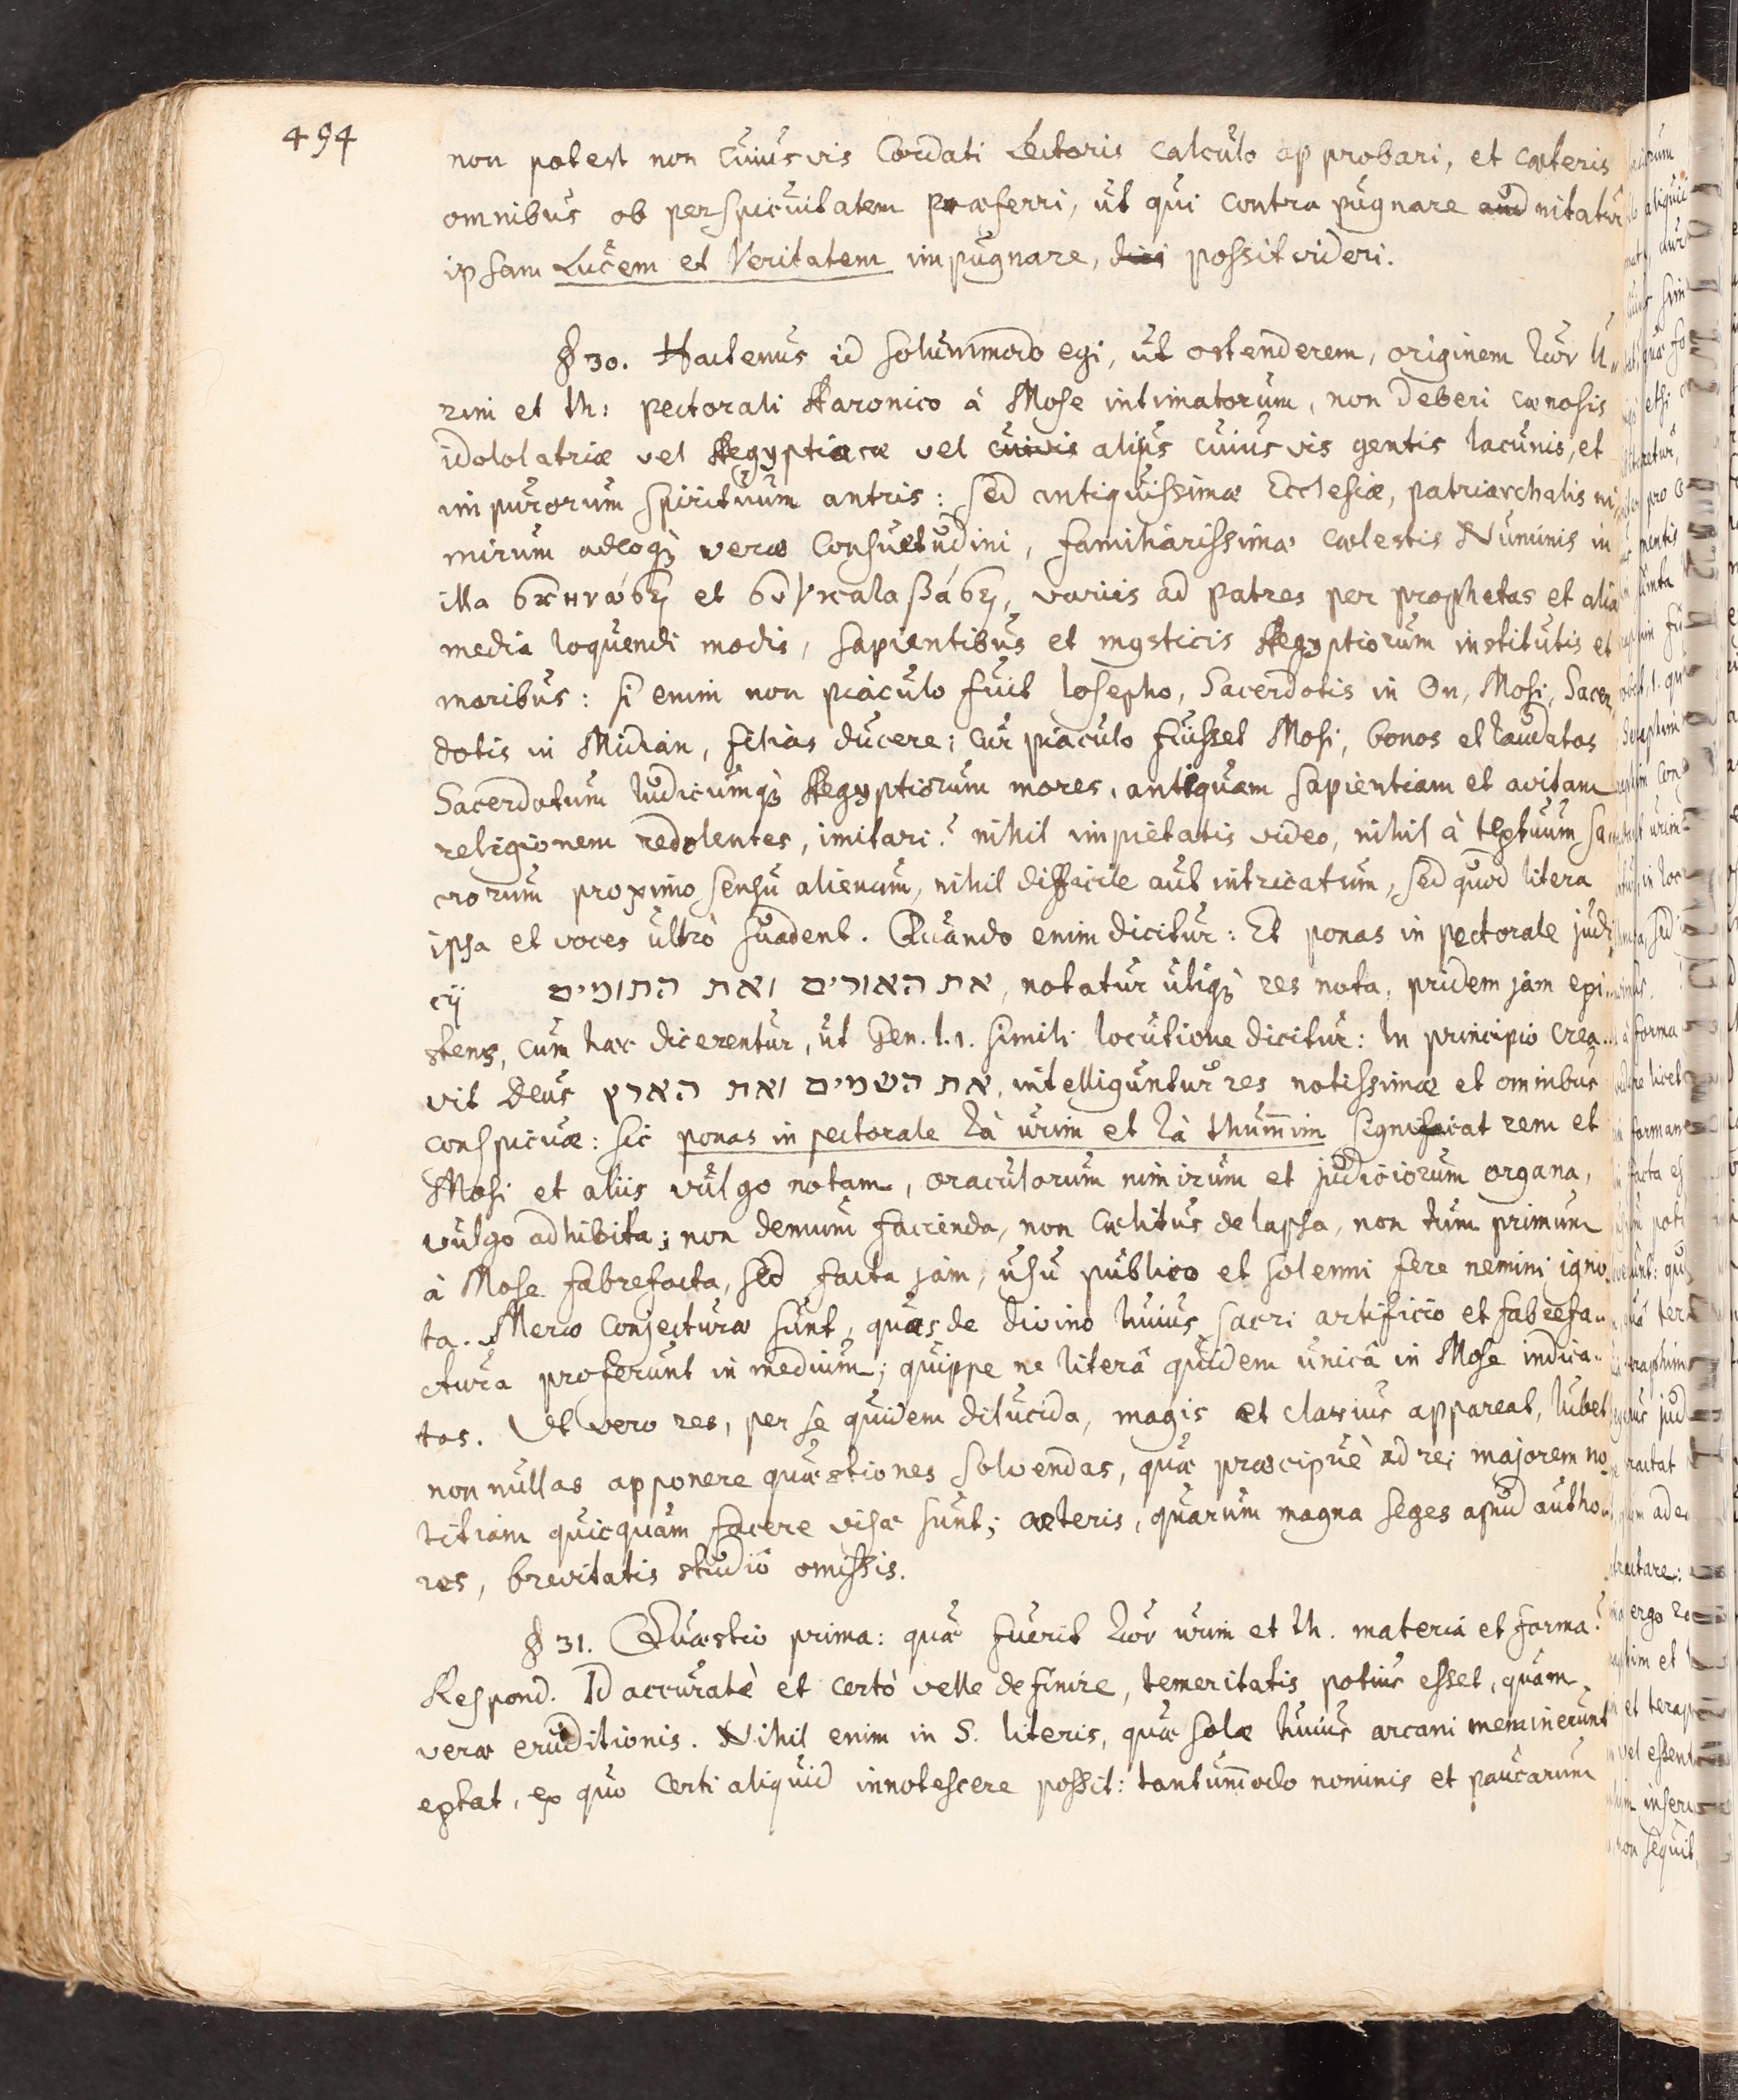 494
non potest non cuiusvis Cordati Lectoris calculo approbari, et cæteris
omnibus ob perspicuitatem præferri, ut qui contra pugnare aud nitatur
ipsam Lucem et Veritatem impugnare, dici possit videri.
§ 30. Hactenus id solummodo egi, ut ostenderem, originem τῶν U„
rim et th: pectorali Aaronico à Mose intimatorum, non deberi cœnosis
idololatriæ vel Aegyptiacæ vel cuivis alijs cuiusvis gentis lacunis, et
impurorum spirituum antris: sed antiquissimæ Ecclesiæ, patriarchalis ni
mirum adeoqꝫ veræ Consuetudini, familiarissimæ cælestis Numinis in
illa σκηνώσῃ et συγκαταβάσῃ, variis ad Patres per prophetas et alia
media loquendi modis, sapientibus et mysticis Aegyptiorum institutis et
moribus: si enim non piaculo fuit Iosepho, Sacerdotis in On, Mosi, Sacer„
dotis in Midian, filias ducere; cur piaculo fuisset Mosi, bonos et laudatos
Sacerdotum Iudicumqꝫ Aegyptiorum mores, antiquam sapientiam et avitam
religionem redolentes, imitari? nihil impietatis video, nihil à textuum sa
crorum proximo sensu alienum, nihil difficile aut intricatum, sed quod litera
ipsa et voces ultrò suadent. Quando enim dicitur: Et ponas in pectorale judi
cij את האורים ואת התומים, notatur utiqꝫ res nota, pridem jam exi„
stens, cum hæc dicerentur, ut Gen. I.1. simili locutione dicitur: In principio crea„
vit Deus את השמים ואת הארץ, intelliguntur res notissimæ et omnibus
conspicuæ: sic ponas in pectorale τὰ urim et τὰ thummim significat rem et
Mosi et aliis vulgo notam, oraculorum nimirum et judiciorum organa,
vulgo adhibita; non demum facienda, non cælitus delapsa, non tum primum
à Mose fabrefacta, sed facta jam, usu publico et solenni fere nemini igno
ta. Meræ conjecturæ sunt, quas de divino huius sacri artificio et fabrefa„
ctura proferunt in medium; quippe ne literâ quidem unicâ in Mose indica„
tas. Ut vero res, per se quidem dilucida, magis et clarius appareat, lubet
nonnullas apponere quæstiones solvendas, quæ præcipuè ad rei majorem no
titiam quicquam facere visæ sunt; cæteris, quarum magna seges apud autho„
res, brevitatis studio omissis.
§ 31. Quæstio prima: quæ fuerit τῶν urim et th. materia et forma?
Respond. Id accuratè et certò velle definire, temeritatis potius esset, quàm
veræ eruditionis. Nihil enim in S. literis, quæ solæ huius arcani meminerunt
extat, ex quo certi aliquid innotescere possit: tantummodo nominis et paucarum